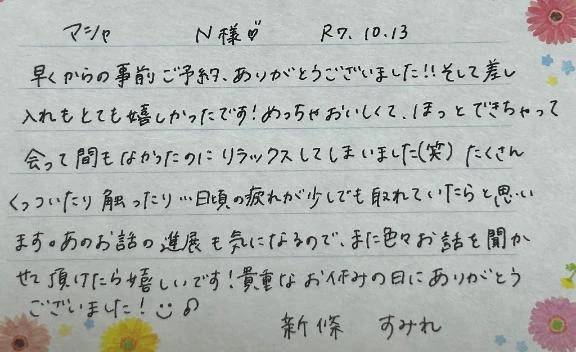 マシャ N様♡ R7.10.13
早くからの事前ご予約、ありがとうございました!!そして差し
入れもとても嬉しかったです!めっちゃおいしくて、ほっとできちゃって
会って間もなかったのにリラックスしてしまいました(笑) たくさん
くっついたり触ったり…日頃の疲れが少しでも取れていたらと思い
ます。あのお話の進展も気になるので、また色々お話を聞か
せて頂けたら嬉しいです!貴重なお休みの日にありがとう
ございました!☺♪
新條 すみれ